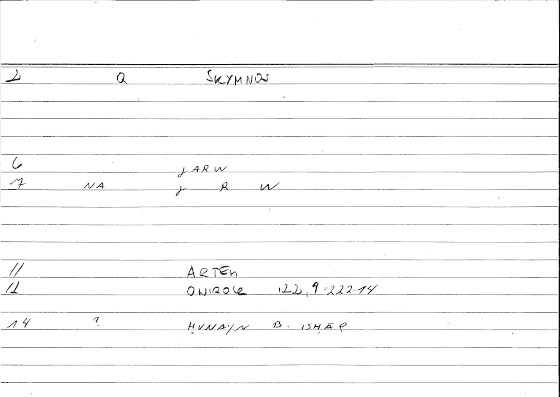 2 Q SKYMNOS
6 JARW
7 NA J R W
11 ARTEM
12 ONIROCR 122,9-222.14
14 ? HUNAYN B. ISHAQ